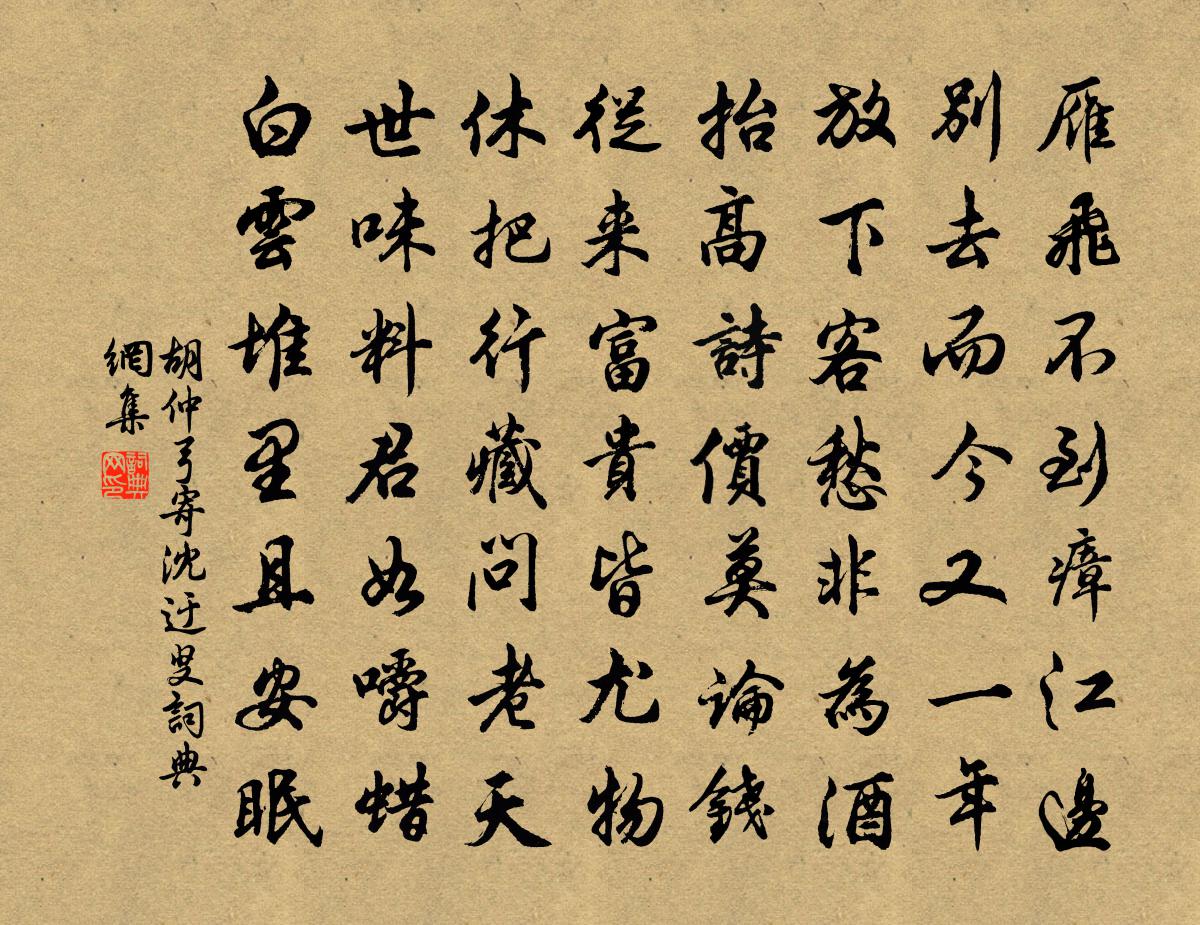 雁飛不到瘴江邊
別去而今又一年
放下客愁非為酒
抬高詩價莫論錢
從来富貴皆尤物
休把行藏問老天
世味料君如嚼蜡
白雲堆里且安眠
胡仲弓寄沈迂叟詞典
網集
詞典
网印